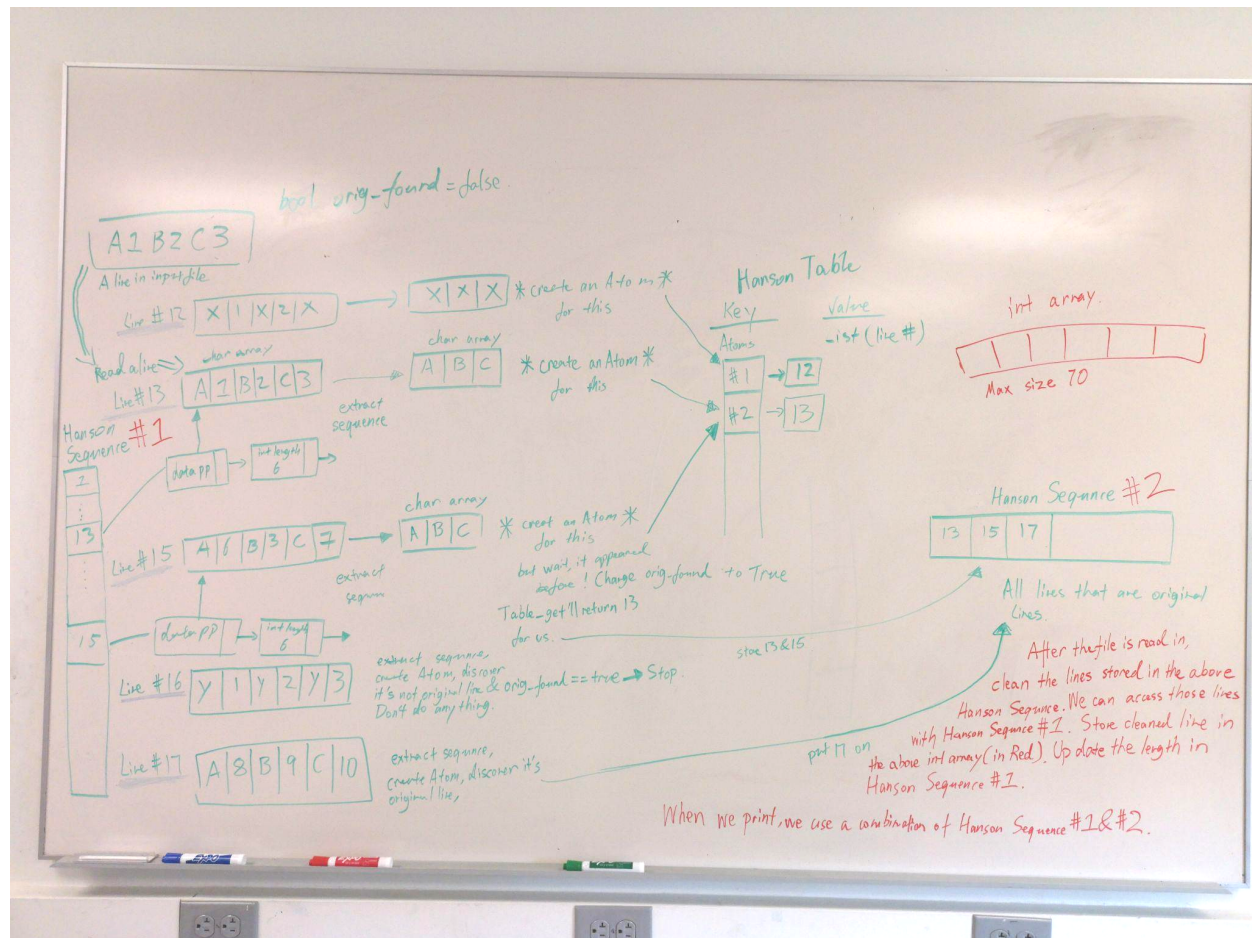 bool orig_found = false
A1B2C3
A line in input file
Line #12 X|1|X|2|X
X|X|X
* create an Atom *
for this
Read a line
char array
Line #13 A|1|B|2|C|3
extract
sequence
char array
A|B|C
* create an Atom *
for this
Hanson
Sequence #1
1
13
15
datapp
int length
6
Line #15 A|6|B|3|C|7
extract
char array
A|B|C
* creat an Atom *
for this
but wait, it appeared
before! Change orig_found to True
Table_get'll return 13
for us.
store 13 & 15
datapp
int length
6
Line #16 Y|1|Y|2|Y|3
extract sequence,
create Atom, discover
it's not original line & orig_found == true → Stop.
Don't do anything.
Line #17 A|8|B|9|C|10
extract sequnce,
create Atom, discover it's
original line,
put 17 on
Hanson Table
Key
Value
Atoms
(line #)
#1 → 12
#2 → 13
int array.
Max size 70
Hanson Sequnce #2
13 15 17
All lines that are original
lines.
After the file is read in,
clean the lines stored in the above
Hanson Sequnce. We can access those lines
with Hanson Sequnce #1. Store cleaned line in
the above int array (in Red). Update the length in
Hanson Sequence #1.
When we print, we use a combination of Hanson Sequence #1 & #2.
EXPO
EXPO